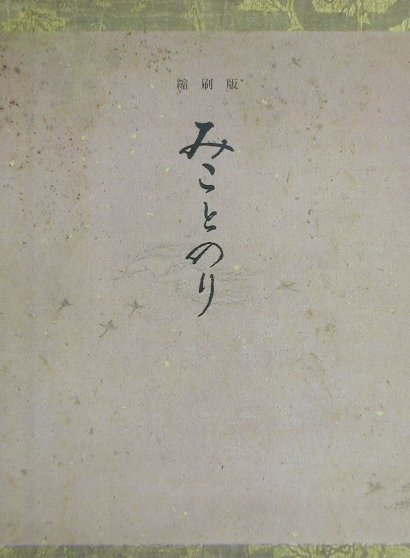 縮刷版
みことのり